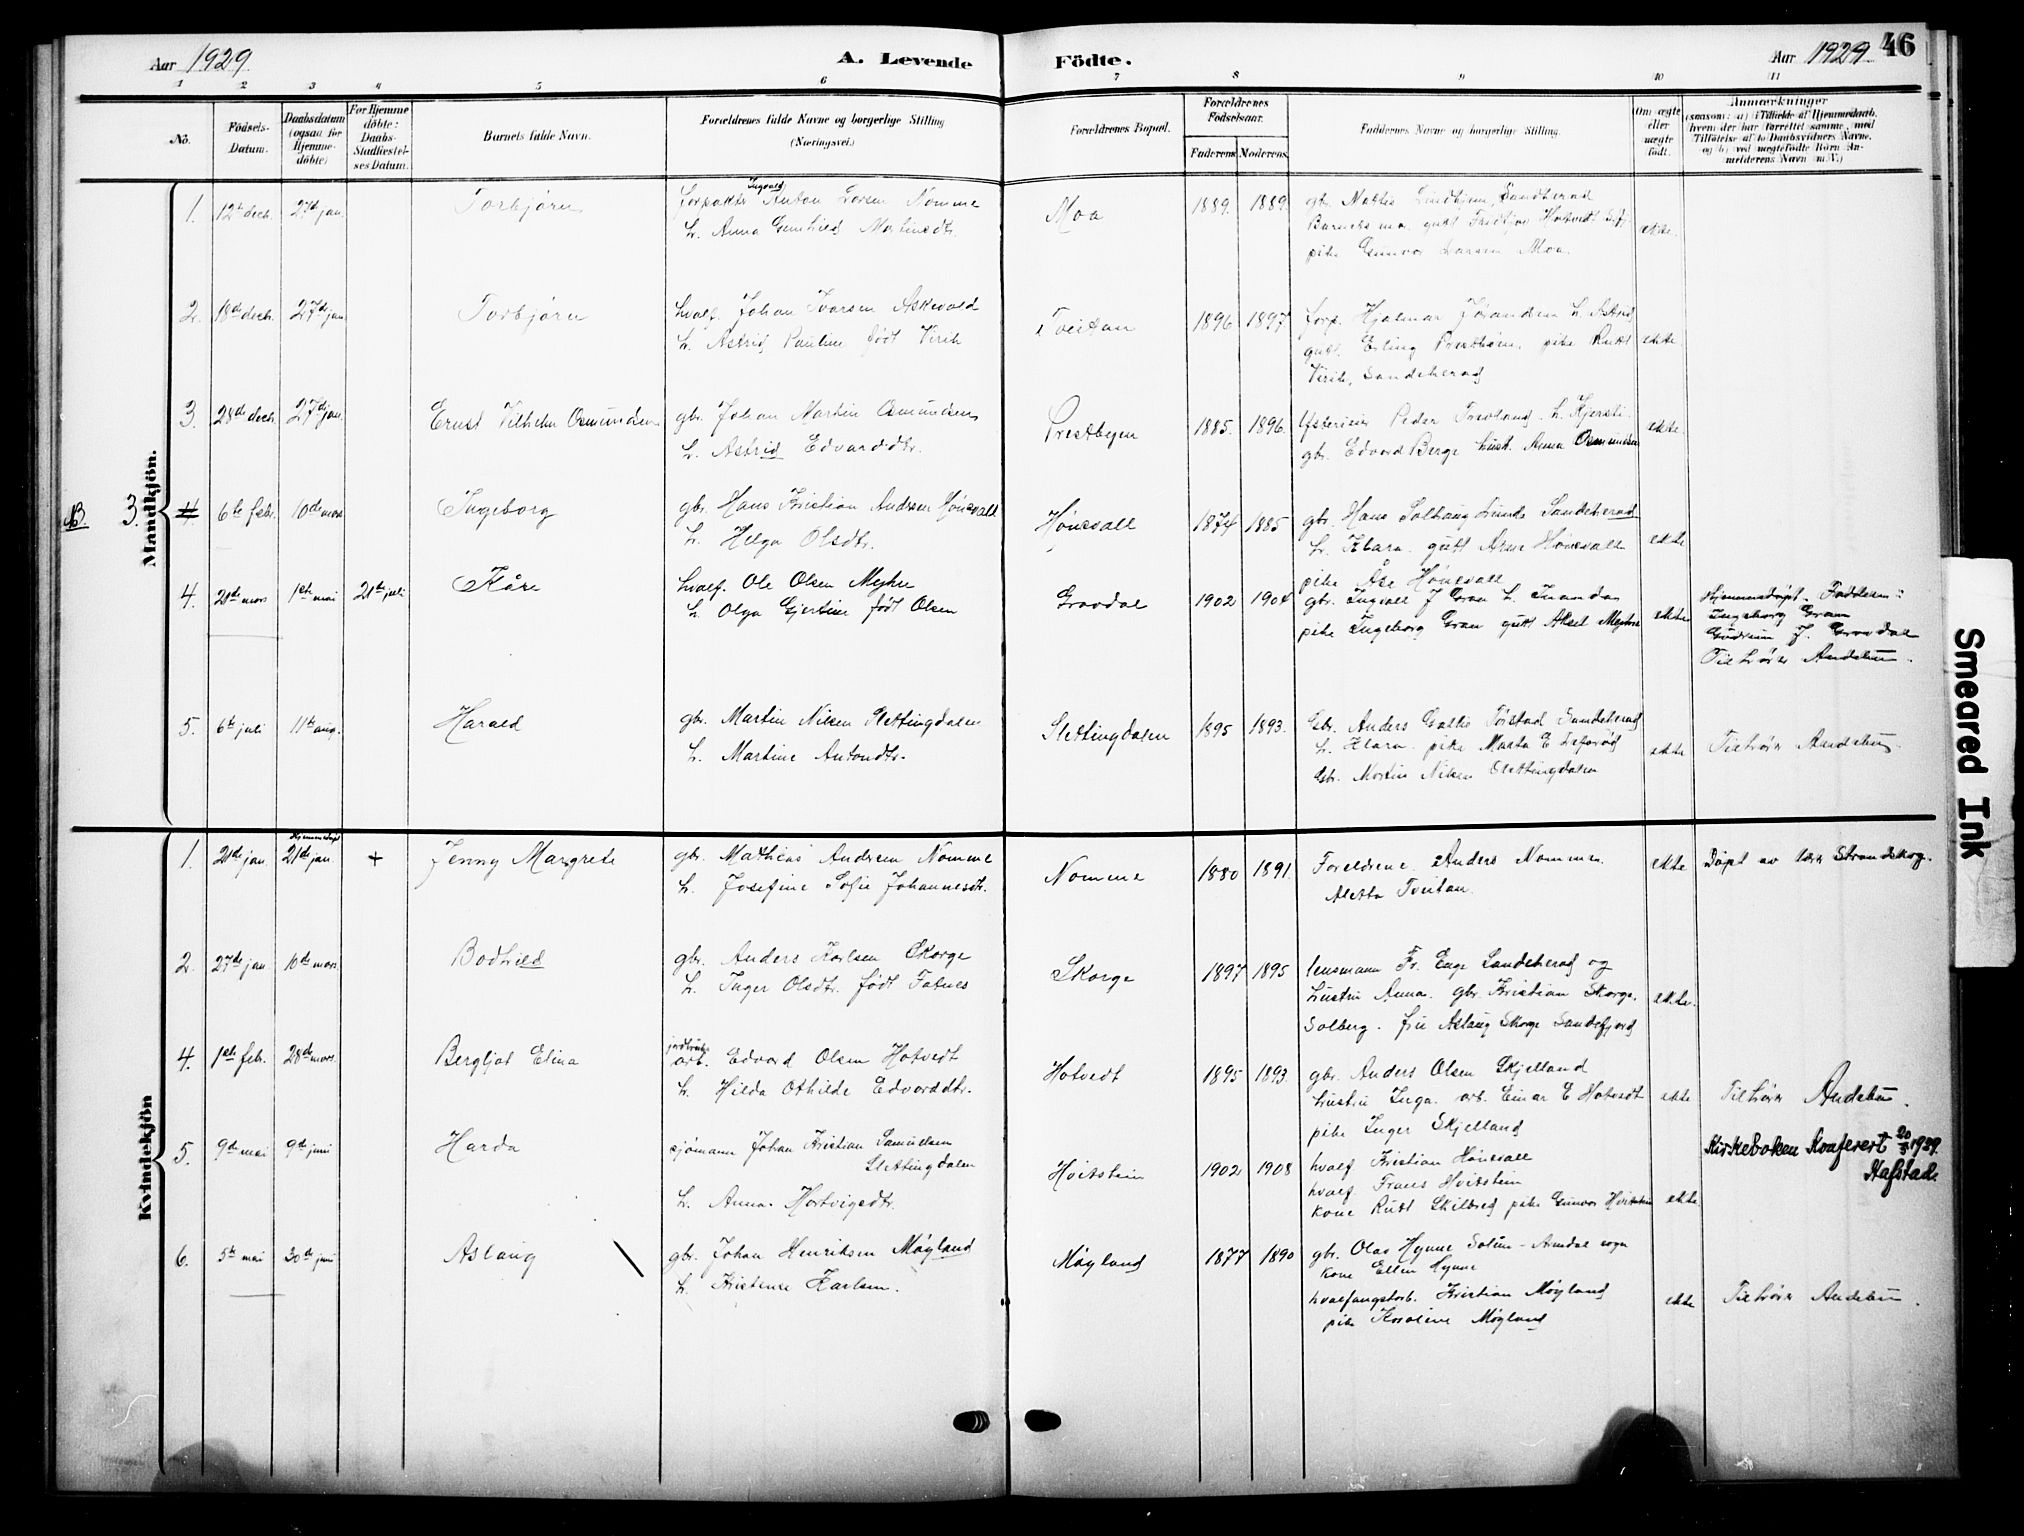 Aar 1929
A. Levende
Födte.
Aar 1929
46
1 2 3 4 5 6 7 8 9 10 11
No.
Födsels-
Datum.
Daabsdatum
(ogsaa for
Hjemme-
döbte)
For Hjemme
döbte:
Daabs-
Stadfæstel-
ses Datum.
Barnets fulde Navn.
Forældrenes fulde Navne og borgerlige Stilling
(Næringsvei.)
Forældrenes Bopæl.
Forældrenes
Födselsaar.
Faderens Moderens
Faddernes Navne og borgerlige Stilling.
Om ægte
eller
uægte
födt.
Anmærkninger
(saasom: a) i Tilfælde af Hjemmedaab,
hvem der har forrettet samme, med
Tilföielse af to Daabsvidners Navne,
og b) ved uægtefödte Börn An-
melderens Navn m. V.)
Mandkjön.
1. 12te decb. 27de jan. Torbjørn
forpakter Ingvald Anton Larsen Nomme
h. Anna Gunhild Martinsdtr.
Moa 1889. 1889.
gb. Mattis Lindhjem, Sandeherad
Barnets mor. gutt Fridtjov Hotvedt S.fj.
pike Gunvor Larsen Moa.
ekte.
2. 18de decb. 27de jan. Torbjørn
hvalf. Johan Ivarsen Askevold
h. Astrid Pauline født Virik
Tveitan 1896 1897
forp. Hjalmar Jørandsen h. Astrid
gutt. Erling Presthern. pike Rutt
Virik, Sandeherad
ekte.
3. 28de decb. 27de jan. Ernst Vilhelm Osmundsen
gbr. Johan Martin Osmundsen
h. Astrid Edvardsdtr.
Prestbyen 1885. 1896.
Peder Trevland. h. Kjersti.
gbr. Edvard Berge hust. Anna Osmundsen
ekte.
NB. 3. 4. 6te febr. 10de mars Ingeborg
gbr. Hans Kristian Andersen Hønsvall
h. Helga Olsdtr.
Hønsvall 1874 1885
gbr. Hans Solhaug Lunde Sandeherad
h. Klara. gutt Arne Hønsvall
pike Åse Hønsvall
ekte
4. 21de mars 1ste mai 21de juli Kåre
hvalf. Ole Olsen Myhre
h. Olga Gjertine født Olsen
Gravdal 1902 1904
gbr. Ingvall J Gran h.
pike Ingeborg Gran gutt Aksel Myhre
ekte
Hjemmedøpt. Faddere:
Ingeborg Gran
Gudrun J. Gravdal
Tilhører Andebu.
5. 6te juli 11te aug. Harald
gbr. Martin Nilsen Slettingdalen
h. Martine Antondtr.
Slettingdalen 1895 1893.
Gbr. Anders Tøistad Sandeherad
h. Klara. pike Marta E
Gbr. Martin Nilsen Slettingdalen
ekte
Tilhører Andebu.
Kvindekjön
1. 21de jan. Hjemmedøpt 21de jan. + Jenny Margrete
gbr. Mathias Andersen Nomme
h. Josefine Sofie Johannesdtr.
Nomme 1880 1891.
Foreldrene Anders Nomme.
Aletta Tveitan.
ekte
Døpt av lærer Strandskog.
2. 27de jan. 10de mars. Bodhild
gbr. Anders Karlsen Skorge
h. Inger Olsdtr. født Fatnes
Skorge 1897 1895
lensmann Fr. Enge Sandeherad og
hustru Anna. gbr. Kristian Skorge.
Solberg. fru Aslaug Skorge Sandefjord
ekte.
4. 1ste febr. 28de mars. Bergljot Elina
jordbruks
arb. Edvard Olsen Hotvedt
h. Hilda Othilde Edvarddtr.
Hotvedt 1895 1893.
gbr. Anders Olsen Skjelland
hustru Inga. arb. Einar E Hotvedt
pike Inger Skjelland
ekte
Tilhører Andebu.
5. 9de mai 9de juni Harda
sjømann Johan Kristian Samuelsen
Slettingdalen
h. Anna Hartvigsdtr.
Hvitstein 1902 1908
hvalf Kristian Hønsvall
hvalf Frans Hvitstein
kone Rutt Skilbred pike Gunvor Hvitstein
ekte.
Kirkeboken konferert 20/ 1929.
Hafstad.
6. 5te mai 30de juni Aslaug
gbr. Johan Henriksen Møyland
h. Kristense Karlsen.
Møyland 1877 1890
gbr. Olav Hynne Solum-
kone Ellen Hynne
hvalfangstarb. Kristian Møyland
pike Karoline Møyland
ekte
Tilhører Andebu.
Smeared Ink